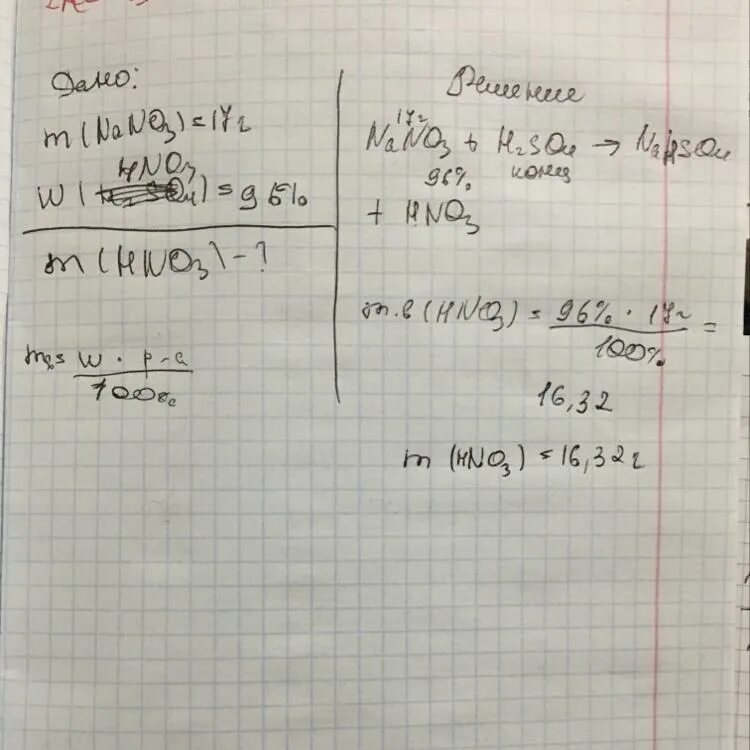 Дано:
m(NaNO₃)=17г
HNO₃
W( )=96%
m(HNO₃)-?
W · р-а
100%
Решение
17г
NaNO₃ + H₂SO₄ → NaHSO₄
96% конц
+ HNO₃
m.в(HNO₃) = 96% · 17г =
100%
16,32
m(HNO₃)=16,32г